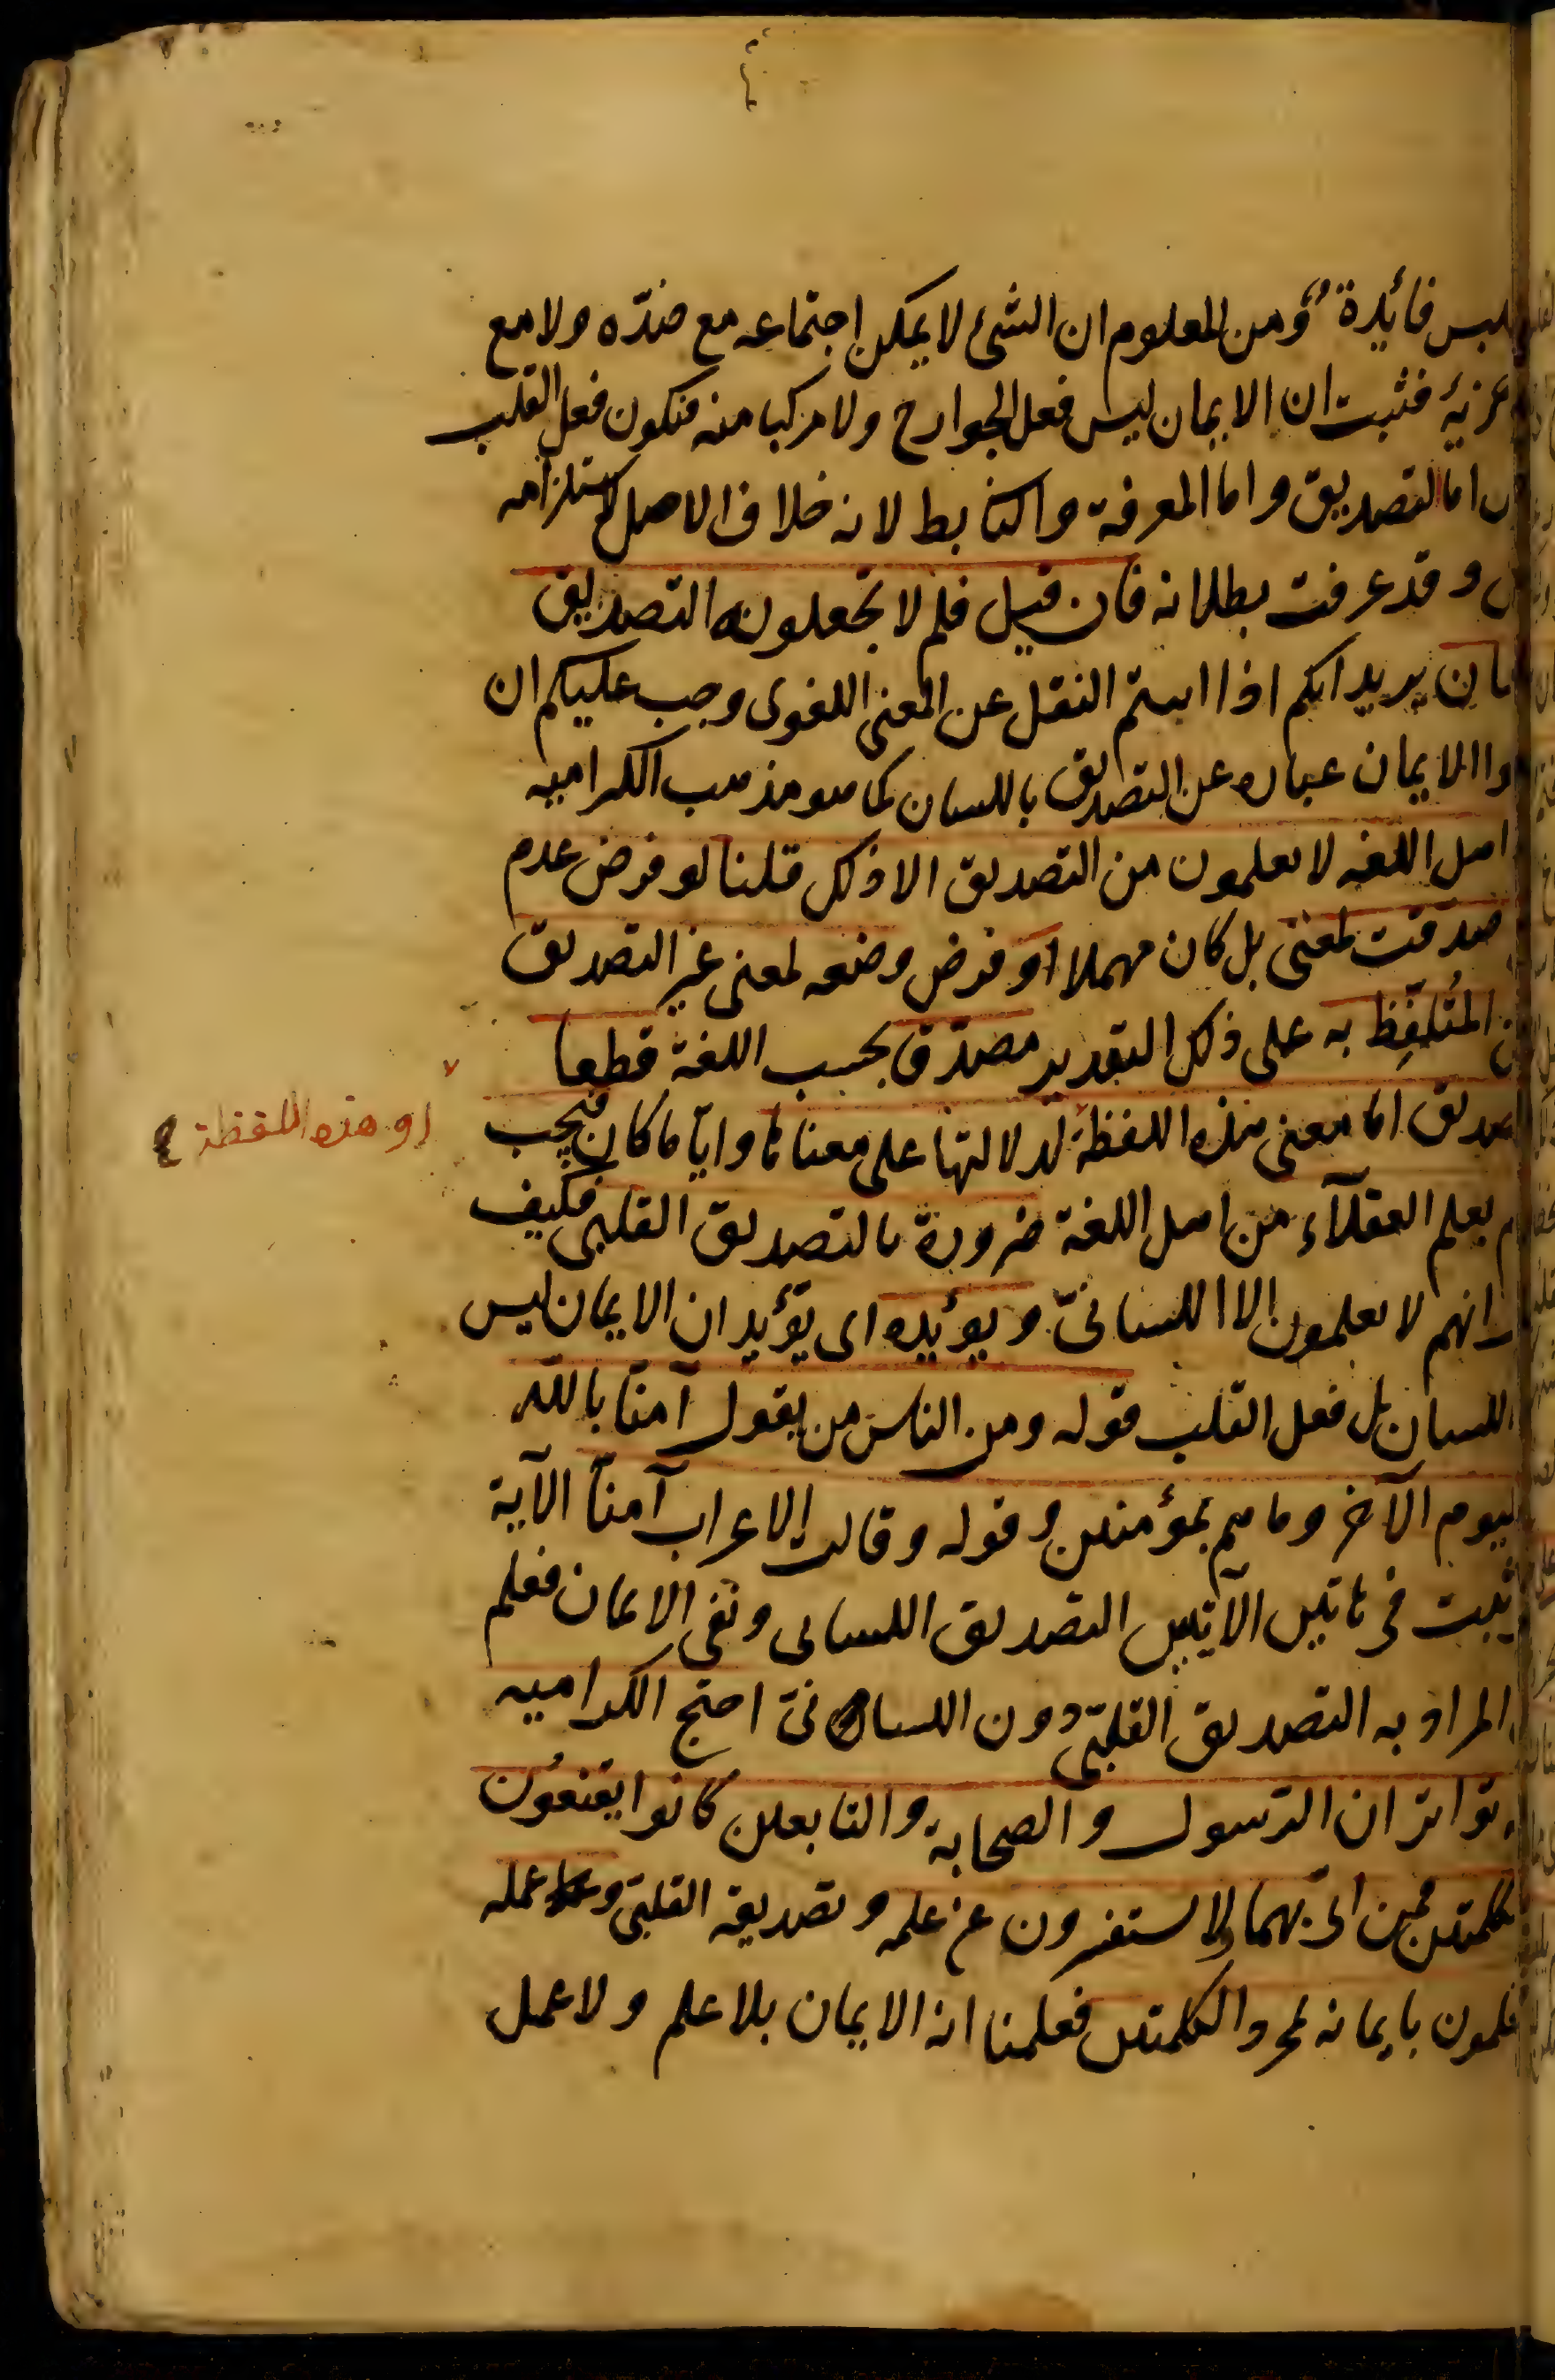 فائدة ومن المعلوم ان الشئ لا يمكن اجتماعه مع ضدّه ولا مع
فثبت ان الايمان ليس فعل الجوارح ولا مركبا منه فيكون فعل القلب
اما التصديق واما المعرفة والثا بط لانه خلاف الاصل لاستلزامه
وقد عرفت بطلانه فان قيل فلم لا تجعلونه التصديق
يريد انكم اذا ابيتم النقل عن المعنى اللغوى وجب عليكم ان
الايمان عباره عن التصديق باللسان كما هو مذهب الكراميه
اهل اللغه لا يعلمون من التصديق الا ذلك قلنا لو فرض عدم
صدقت لمعنى بل كان مهملا او فرض وضعه لمعنى غير التصديق
المُتلفِّظ به على ذلك التقدير مصدّق بحسب اللغة قطعا
اما معنى هذه اللفظة لدلالتها على معناها وايّا ما كان فيجب
او هذه اللفظة
يعلم العقلآء من اهل اللغة ضرورة بالتصديق القلبى فكيف
انهم لا يعلمون الا اللسانىّ ويؤيده اى يؤيد ان الايمان ليس
اللسان بل فعل القلب قوله ومن الناس من يقول آمنّا بالله
اليوم الآخر وما هم بمؤمنين وقوله وقالت الاعراب آمنّا الآية
فى هاتين الآيتين التصديق اللسانى ونفى الايمان فعلم
المراد به التصديق القلبىّ دون اللسانىّ احتج الكراميه
تواتر ان الرسول والصحابة والتابعين كانوا يقنعون
بالكلمتين ممن اتى بهما ولا يستفسرون عن علمه وتصديقه القلبىّ وعمله
بايمانه بمجرد الكلمتين فعلمنا انه الايمان بلا علم ولا عمل